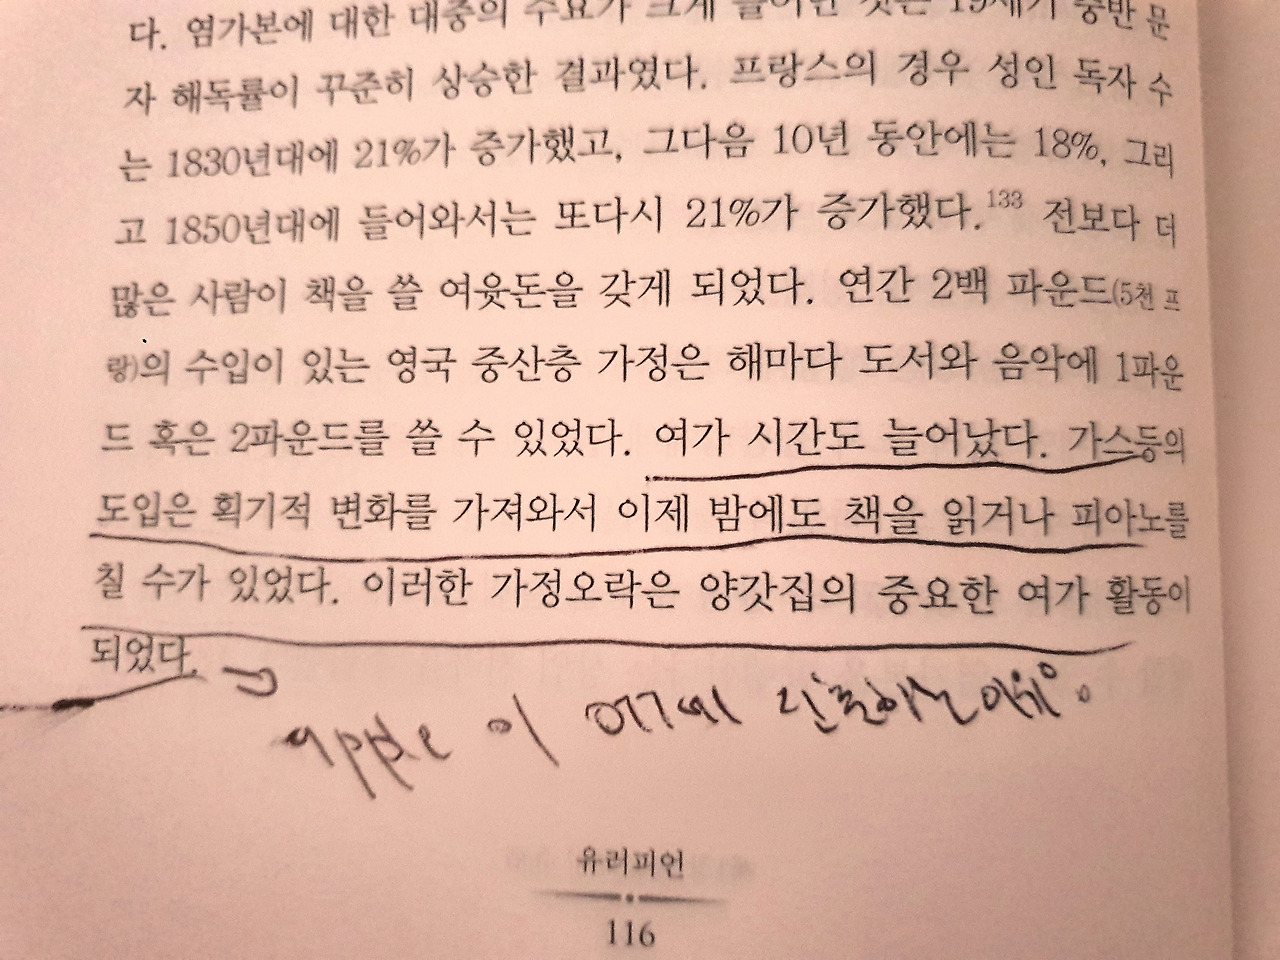 다. 염가본에 대한 대중의 수요가 크게 늘어난 것은 19세기 중반 문
자 해독률이 꾸준히 상승한 결과였다. 프랑스의 경우 성인 독자 수
는 1830년대에 21%가 증가했고, 그다음 10년 동안에는 18%, 그리
고 1850년대에 들어와서는 또다시 21%가 증가했다.133 전보다 더
많은 사람이 책을 쓸 여윳돈을 갖게 되었다. 연간 2백 파운드(5천 프
랑)의 수입이 있는 영국 중산층 가정은 해마다 도서와 음악에 1파운
드 혹은 2파운드를 쓸 수 있었다. 여가 시간도 늘어났다. 가스등의
도입은 획기적 변화를 가져와서 이제 밤에도 책을 읽거나 피아노를
칠 수가 있었다. 이러한 가정오락은 양갓집의 중요한 여가 활동이
되었다.
apple 이 OTT에 진출하는 이유.
유러피언
116